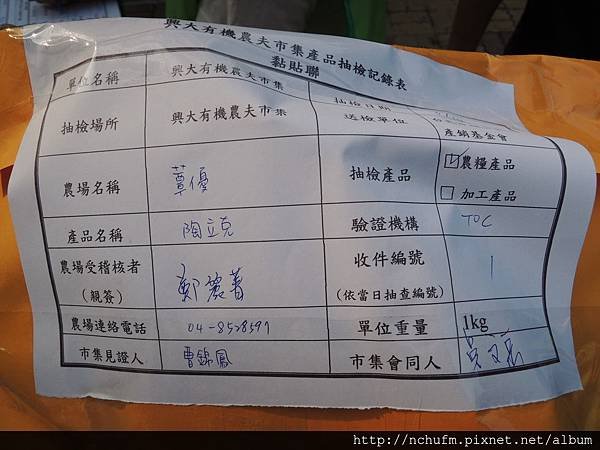 興大有機農夫市集產品抽檢記錄表
黏貼聯
單位名稱 興大有機農夫市集 抽檢日期
抽檢場所 興大有機農夫市集 送檢單位 產銷基金會
農場名稱 蕈優 抽檢產品 ☑農糧產品
□ 加工產品
產品名稱 陶立克 驗證機構 TOC
農場受稽核者 鄭麗菁 收件編號 1
(親簽) (依當日抽查編號)
農場連絡電話 04-8528597 單位重量 1kg
市集見證人 曹錦鳳 市集會同人
http://nchufm.pixnet.net/album